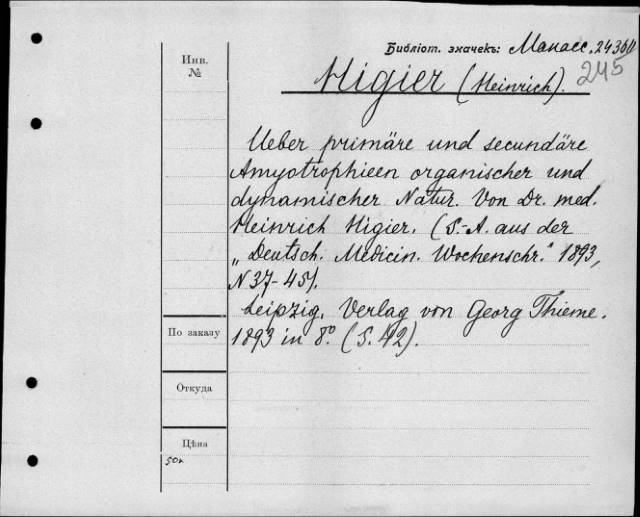 Библіот. значекъ: Манасс. 24360
245
Higier (Heinrich).
Инв.
№
Ueber primäre und secundäre
Amyotrophieen organischer und
dynamischer Natur. Von Dr. med.
Heinrich Higier. (S.-A. aus der
„Deutsch. Medicin. Wochenschr." 1893,
N 37-45).
Leipzig, Verlag von Georg Thieme.
1893 in 8º. (S. 42).
По заказу
Откуда
Цѣна
50к